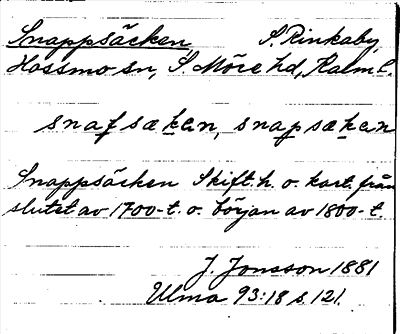 Snappsäcken, S. Rinkaby,
Hossmo sn, S. Möre hd, Kalm. l.
snafsæken, snapsæken
Snappsäcken Skift. h. o. kart. från
slutet av 1700-t. o. början av 1800-t.
J. Jonsson 1881
Ulma 93:18 s. 121.